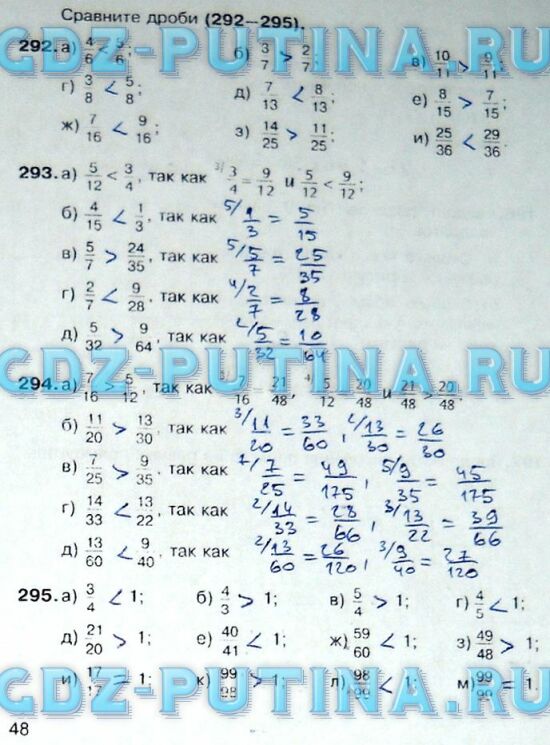 Сравните дроби (292—295).
292. а) 4/6 < 5/6; б) 3/7 > 2/7; в) 10/11 > 9/11;
г) 3/8 < 5/8; д) 7/13 < 8/13; е) 8/15 > 7/15;
ж) 7/16 < 9/16; з) 14/25 > 11/25; и) 25/36 < 29/36.
293. а) 5/12 < 3/4, так как 3/ 3/4 = 9/12 и 5/12 < 9/12;
б) 4/15 < 1/3, так как 5/ 1/3 = 5/15
в) 5/7 > 24/35, так как 5/ 5/7 = 25/35
г) 2/7 < 9/28, так как 4/ 2/7 = 8/28
д) 5/32 > 9/64, так как 2/ 5/32 = 10/64
294. а) 7/16 > 5/12, так как 3/ 7/16 = 21/48, 4/ 5/12 = 20/48 и 21/48 > 20/48.
б) 11/20 > 13/30, так как 3/ 11/20 = 33/60, 2/ 13/30 = 26/30
в) 7/25 > 9/35, так как 7/ 7/25 = 49/175, 5/ 9/35 = 45/175
г) 14/33 < 13/22, так как 2/ 14/33 = 28/66, 3/ 13/22 = 39/66
д) 13/60 < 9/40, так как 2/ 13/60 = 26/120, 3/ 9/40 = 27/120
295. а) 3/4 < 1; б) 4/3 > 1; в) 5/4 > 1; г) 4/5 < 1;
д) 21/20 > 1; е) 40/41 < 1; ж) 59/60 < 1; з) 49/48 > 1;
и) 17/17 = 1; к) 99/98 > 1; л) 98/99 < 1; м) 99/99 = 1.
48
GDZ-PUTINA.RU
GDZ-PUTINA.RU
GDZ-PUTINA.RU
GDZ-PUTINA.RU